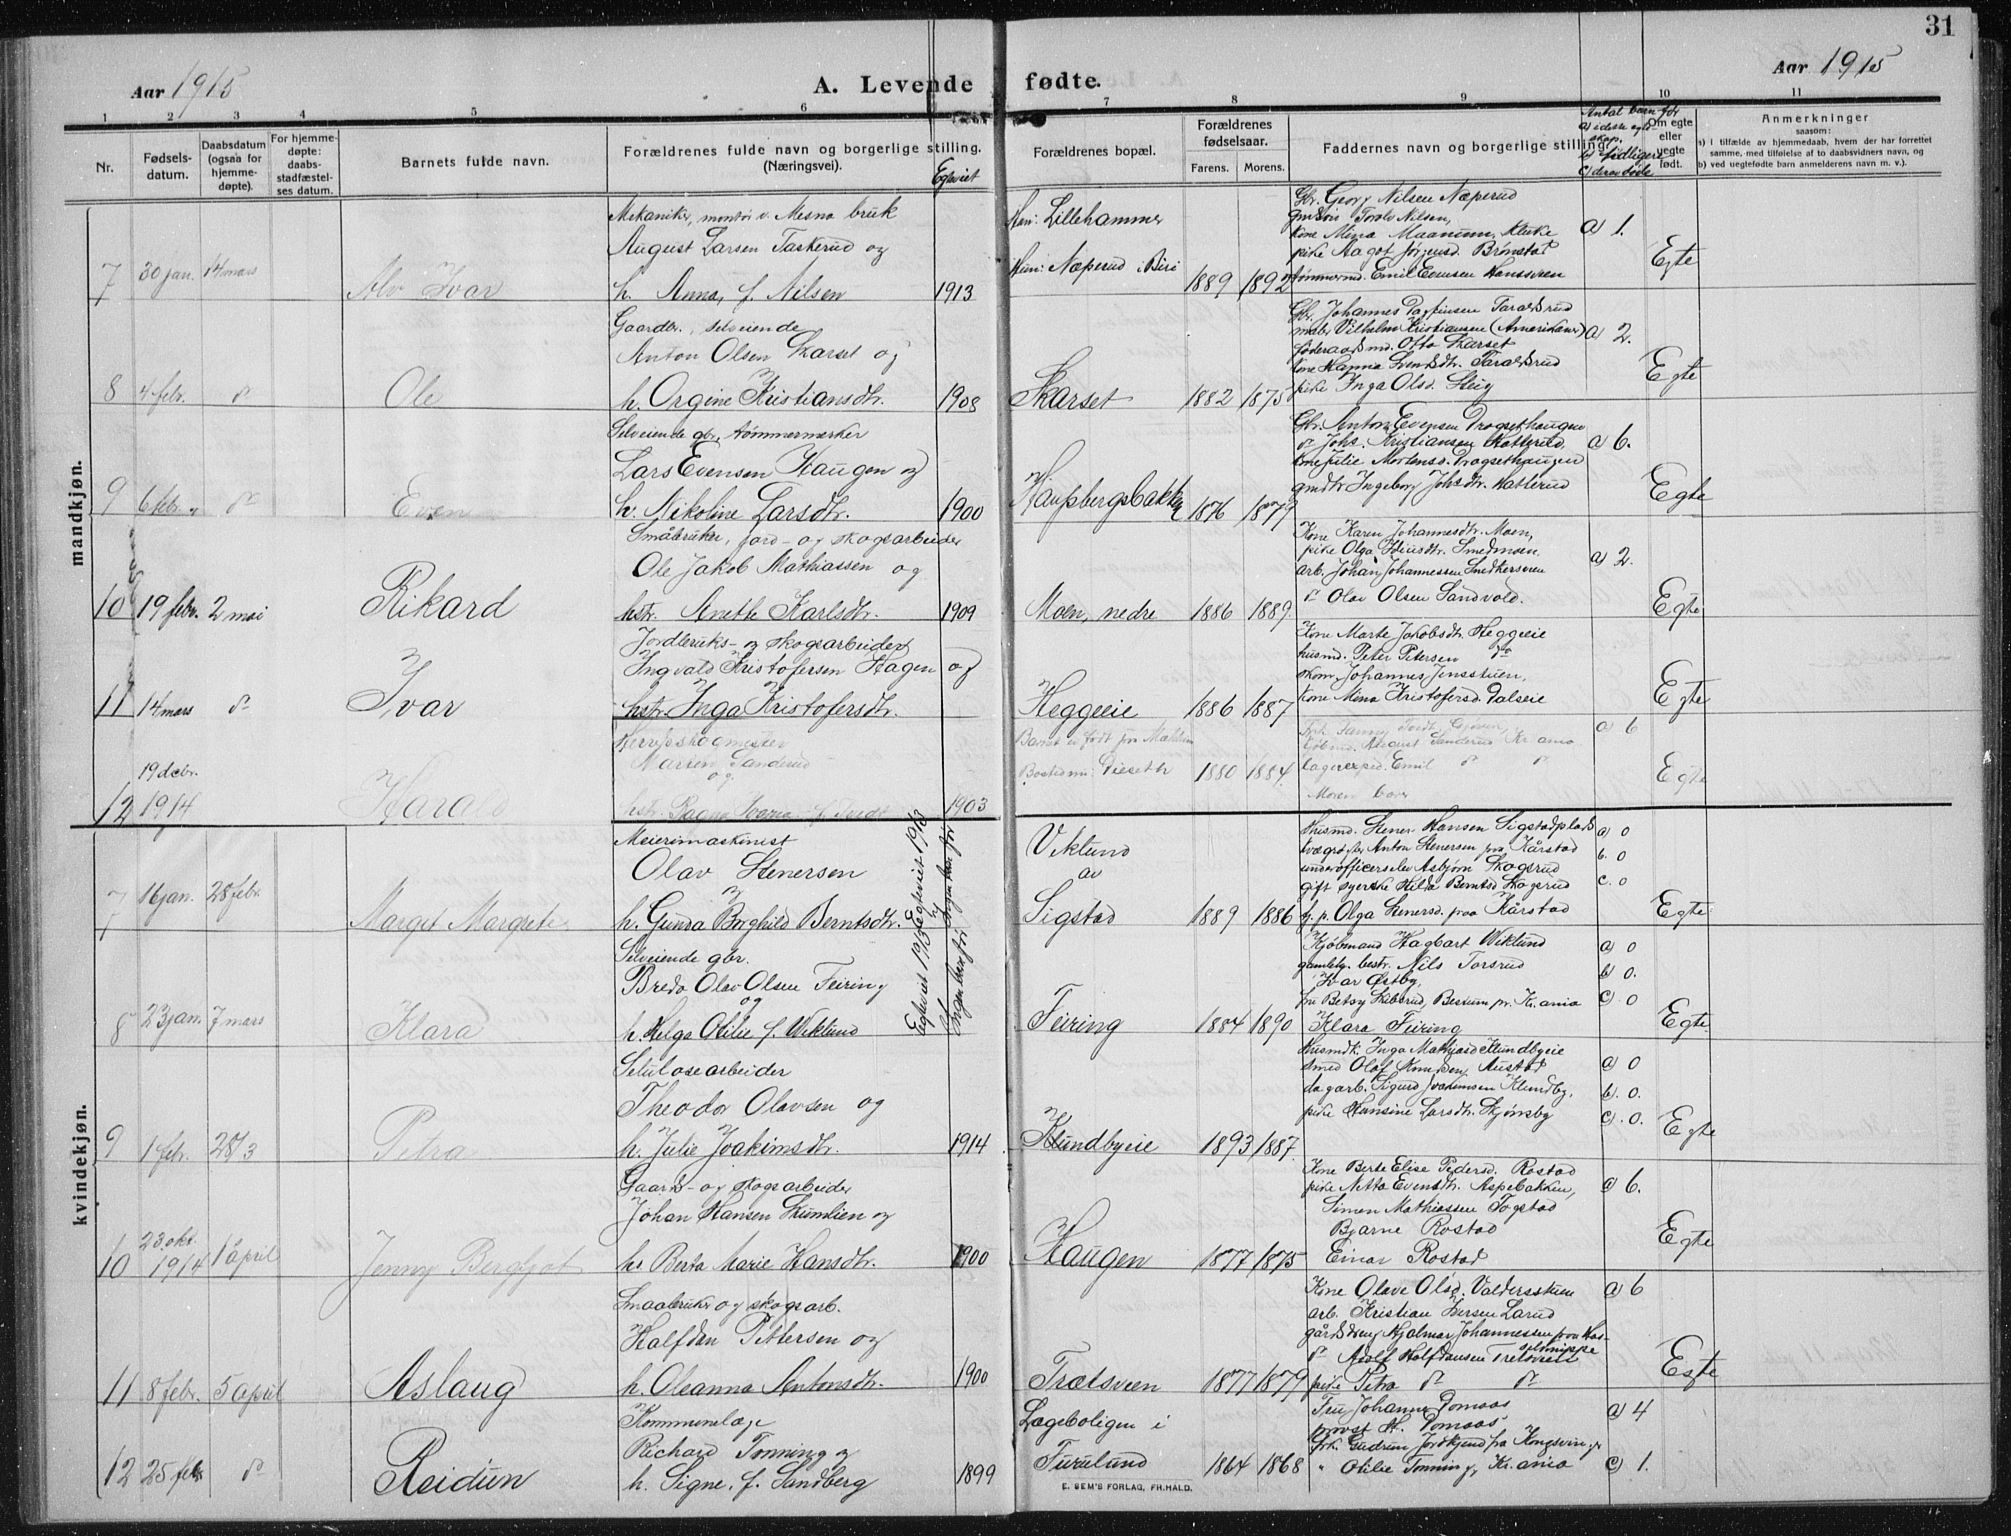 31
Aar 1915
A. Levende fødte.
Aar 1915
1 2 3 4 5 6 7 8 9 10 11
Nr.
Fødsels-
datum.
Daabsdatum
(ogsaa for
hjemme-
døpte).
For hjemme-
døpte:
daabs-
stadfæstel-
ses datum.
Barnets fulde navn.
Forældrenes fulde navn og borgerlige stilling.
(Næringsvei).
Egteviet
Forældrenes bopæl.
Forældrenes
fødselsaar.
Farens. Morens.
Faddernes navn og borgerlige stilling.
Antal barn før
a) i dette egte-
skap.
b) tidligere
c) derav døde
Om egte
eller
uegte
født.
Anmerkninger
saasom:
a) i tilfælde av hjemmedaab, hvem der har forrettet
samme, med tilføielse af to daabsvidners navn, og
b) ved uegtefødte barn anmelderens navn m. v.).
mandkjøn.
7 30 jan. 14 mars
Alv Ivar
Mekaniker, montør v. Mesna bruk
August Larsen Taskerud og
h. Anna, f. Nilsen
1913
Lillehammer
Næperud i Biri
1889 1892
Gbr. Georg Nilsen Næperud
Torolv Nilsen,
kone Mina Maanum, Kluke
pike Magot Jørgensd. Brønstad
tømmermd. Emil Evensen Hansveen
a) 1.
Egte
8 4 febr. do
Ole
Gaardbr., selveiende
Anton Olsen Skarset og
h. Orgine Kristiansdtr.
1908
Skarset
1882 1875
Gbr. Johannes Taraldsrud
Vilhelm Kristiansen (Amerikaner)
føderaadsmd. Otto Skarset
kone Hanna Svendsdtr. Taraldsrud
pike Inga Olsd. Steig
a) 2.
Egte
9 6 febr. do
Even
Selveiende gbr., tømmermerker
Lars Evensen Haugen og
h. Nikoline Larsdtr.
1900
1876 1877
Gbr. Anton Evensen Drogsethaugen
do Johs. Kristiansen Hatterud
kone Julie Mortensd. Drogsethaugen
gmdtr. Ingeborg Johsdtr. Hatterud
a) 6.
Egte
10 19 febr. 2 mai
Rikard
Småbruker, jord- og skogsarbeider
Ole Jakob Mathiassen og
hstr. Anethe Karlsdtr.
1909
Moen, nedre
1886 1889.
Kone Karen Johannesdtr. Moen,
pike Olga Smedmoen.
arb. Johan Johannessen
do Olav Olsen Sandvold.
a) 2.
Egte
11 14 mars do
Ivar
Jordbruks- og skogsarbeider
Ingvald Kristofersen Hagen og
hstr. Inga Kristofersdtr.
Heggeeie
1886 1887
Kone Marte Jakobsdtr. Heggeeie
husmd. Peter Petersen do
skom. Johannes Jensstuen,
kone Mina Kristofersd. Dalseie
Egte
12 19 debr.
1914
Harald
Herredsskogmester
Sanderud
og
hstr. Ragna
1903
Barnet er født
Bostedn: Dieseth
1880 1884.
Frk. Fanny
Kjøbmd. August Sanderud Kr.ania
lagerexped. Emil do do
Moren bar
a 6
Egte
kvindekjøn.
7 16 jan. 28 febr.
Margit Margrete
Meierimaskinist
Olav Stenersen
h. Gunda Borghild Berntsdtr.
Viklund
av
Sigstad
1889 1886
Husmd. Stener Hansen Sigstadplads
Anton Stenersen paa Kårstad
underofficerselev Asbjørn Skogsrud
gift syerske Hilda Berntsd. Skogsrud
g. p. Olga Stenersd. paa Kårstad
a) 0
b. 0
c. 0
Egte
8 23 jan. 7 mars
Klara
Selveiende gbr.
Bredo Olav Olsen Feiring
og
h. Helga Otilie f. Wiklund
Feiring
1884 1890
Kjøbmand Hagbart Wiklund
bestr. Nils Torsrud
Ivar Østby,
fru Betsy Skiberud, Bestum pr. Kr.ania
Klara Feiring
a) 0
b) 0.
c) 0
Egte
9 1 febr. 28/3
Petra
Selulosearbeider
Theodor Olavsen og
h. Julie Joakimsdtr.
1914
Klundbyeie
1893 1887.
Husmdk. Inga Mathiasd. Klundbyeie
smed Olaf Knudsen, Austad
dagarb. Sigurd Joakimsen Klundby,
pike Hansine Larsdtr. Skjønsby
a) 0
b. 0.
c). 0.
Egte
10 23. okt.
1914 1 april
Jenny Bergljot
Gaards- og skogsarbeider
Johan Hansen Skumlien og
h. Berta Marie Hansdtr.
1900
Haugen
1877 1875
Kone Berte Elise Pedersd. Rostad
pike Netta Evensdtr. Aspebakken,
Simen Mathiassen Fogstad
Bjarne Rostad
Einar Rostad
a) 6.
Egte
11 8 febr. 5 april
Aslaug
Smaabruker og skogsarb.
Halfdan Pettersen og
h. Oleanna Antonsdtr.
1900
Trætsveen
1877 1879
Kone Olave Olsd. Valdersstuen
arb. Kristian Iversen Larud
gårdsdreng Hjalmar Johannessen
do Adolf Halfdansen Tretsveen
pike Petra do do
a) 6
Egte
12 25 febr. do
Reidun
Kommunelæge
Richard Tønning og
h. Signe, f. Sandberg
1899
Lægeboligen i
Furulund
1864 1868
Fru Johanne Domaas
provst H. Domaas
Frk. Gudrun Jordkjend fra Kongsvinger
" Otilie Tønning, Kr.ania
a) 4
c) 1.
E. SEM'S FORLAG, FR.HALD.